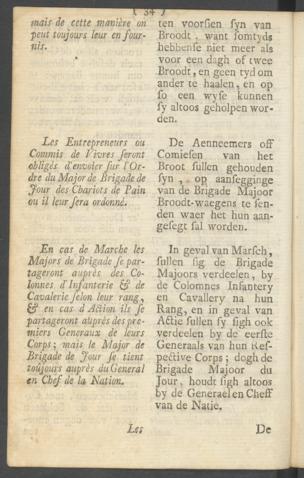 ( 34 )
mais de cette manière on
peut toujours leur en four-
nir.
Les Entrepreneurs ou
Commis de Vivres seront
obligés d'envoïer sur l'Or-
dre du Major de Brigade de
Jour des Chariots de Pain
ou il leur sera ordonné.
En cas de Marche les
Majors de Brigade se par-
tageront auprès des Co-
lonnes d'Infanterie & de
Cavalerie selon leur rang,
& en cas d'Action ils se
partageront auprès des pre-
miers Generaux de leurs
Corps; mais le Major de
Brigade de Jour se tient
toûjours auprès du General
en Chef de la Nation.
Les
ten voorsien syn van
Broodt, want somtyds
hebbense niet meer als
voor een dagh of twee
Broodt, en geen tyd om
ander te haalen, en op
so een wyse kunnen
sy altoos geholpen wor-
den.
De Aenneemers off
Comiesen van het
Broot sullen gehouden
syn, op aansegginge
van de Brigade Majoor
Broodt-waegens te sen-
den waer het hun aan-
gesegt sal worden.
In geval van Marsch,
sullen sig de Brigade
Majoors verdeelen, by
de Colomnes Infantery
en Cavallery na hun
Rang, en in geval van
Actie sullen sy sigh ook
verdeelen by de eerste
Generaals van hun Res-
pective Corps; dogh de
Brigade Majoor du
Jour, houdt sigh altoos
by de Generael en Cheff
van de Natie.
De